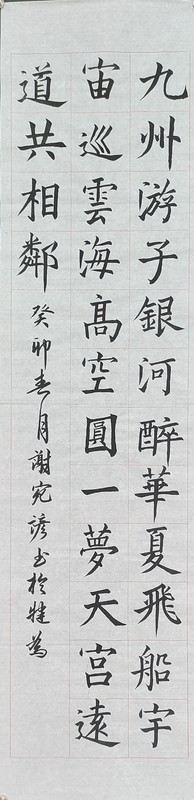 九州游子銀河醉華夏飛船宇
宙巡雲海高空圓一夢天宮遠
道共相鄰
癸卯春月謝宛諺书於犍為